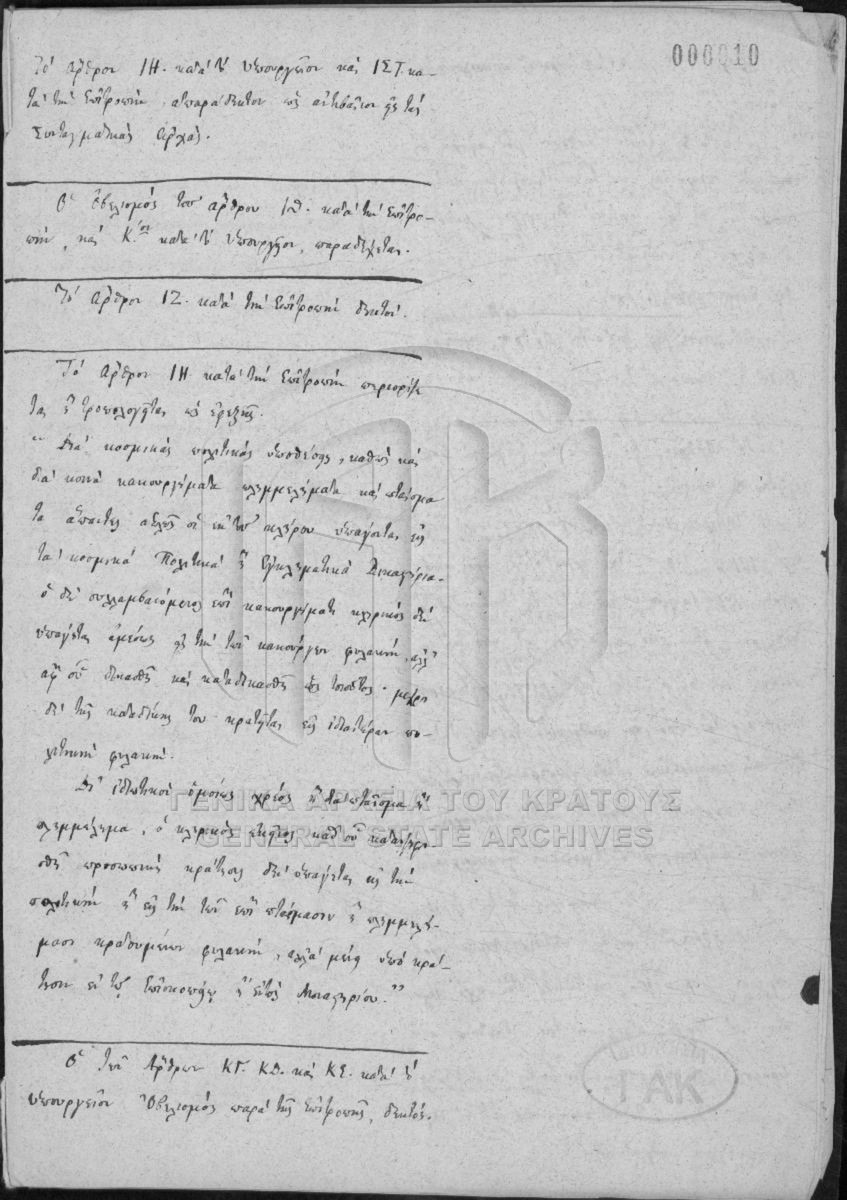 000010
Τὸ ἄρθρον ΙΗ. κατὰ τὸ Ὑπουργεῖον καὶ ΙΣΤ. κα-
τὰ τὴν Ἐπιτροπήν, ἀπαράδεκτον ὡς ἀντιβαῖνον εἰς τὰς
Συνταγματικὰς ἀρχάς.
Ὁ ὀβελισμὸς τοῦ ἄρθρου ΙΘ. κατὰ τὴν Ἐπιτρο-
πήν, καὶ Κ.ου κατὰ τὸ Ὑπουργεῖον, παραδέχεται.
Τὸ ἄρθρον ΙΖ. κατὰ τὴν Ἐπιτροπὴν δεκτόν.
Τὸ ἄρθρον ΙΗ. κατὰ τὴν Ἐπιτροπὴν περιορίζε
ται ἢ τροπολογεῖται ὡς ἑξῆς.
"Διὰ κοσμικὰς πολιτικὰς ὑποθέσεις, καθὼς καὶ
διὰ κοινὰ κακουργήματα πλημμελήματα καὶ πταίσμα
τα ἅπαντες οἱ ἐκ τοῦ κλήρου ὑπάγονται εἰς
τὰ κοσμικὰ Πολιτικὰ ἢ Ἐγκληματικὰ Δικαστήρια.
ὁ δὲ συλλαμβανόμενος ἐπὶ κακουργήματι κληρικὸς δὲν
ὑπάγεται ἀμέσως εἰς τὴν τῶν κακούργων φυλακήν, ἀλλ'
ἀφ' οὗ δικασθῇ καὶ καταδικασθῇ ὡς τοιοῦτος· μέχρι
δὲ τῆς καταδίκης του κρατεῖται εἰς ἰδιαιτέραν πο-
λιτικὴν φυλακήν.
Δι' ἰδιωτικὸν ὁμοίως χρέος ἢ διὰ πταῖσμα ἢ
πλημμέλημα, ὁ κληρικὸς ἐκεῖνος καθ' οὗ
προσωπικὴ κράτησις δὲν ὑπάγεται εἰς τὴν
πολιτικὴν ἢ εἰς τὴν τῶν ἐπὶ πταίσμασιν ἢ πλημμελή-
μασι κρατουμένων φυλακήν, ἀλλὰ μένει ὑπὸ κρά-
τησιν ἐν τῷ Ἐπισκοπείῳ ἢ ἐντὸς Μοναστηρίου."
Ὁ τῶν Ἄρθρων ΚΓ. ΚΔ. καὶ ΚΕ. κατὰ τὸ
Ὑπουργεῖον Ὀβελισμὸς παρὰ τῆς Ἐπιτροπῆς, δεκτός.
ΓΕΝΙΚΑ ΑΡΧΕΙΑ ΤΟΥ ΚΡΑΤΟΥΣ
GENERAL STATE ARCHIVES
ΓΑΚ